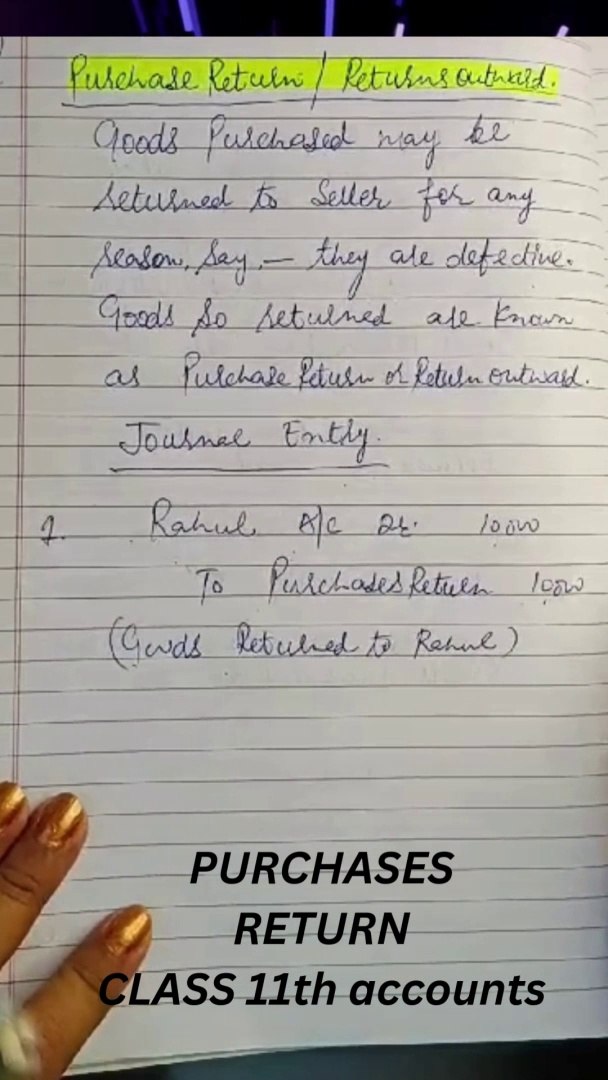 Purchase Return / Returns outward.
Goods Purchased may be
returned to Seller for any
reason, Say, — they are defective.
Goods So returned are known
as Purchase Return or Return outward.
Journal Entry.
1. Rahul A/c Dr. 1000
To Purchases Return 1000
(Goods Returned to Rahul)
PURCHASES
RETURN
CLASS 11th accounts